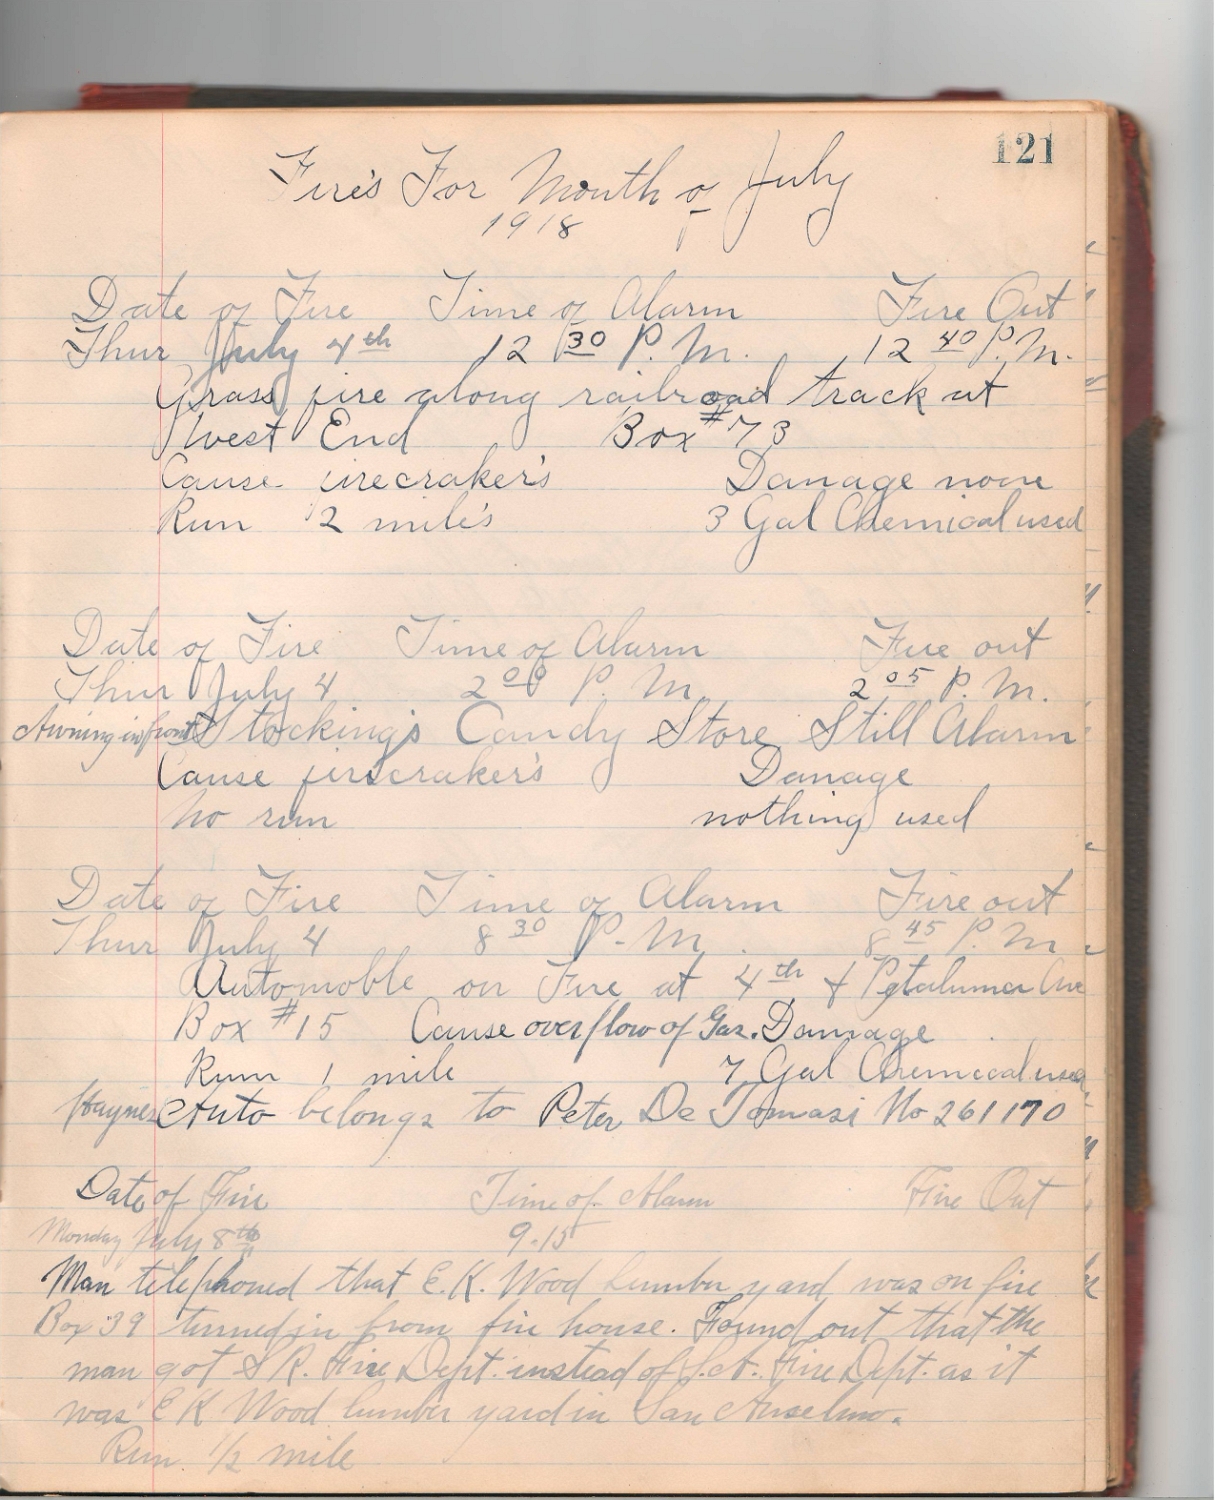 121
Fire's For Month of July
1918
Date of Fire Time of Alarm Fire Out
Thur July 4th 12 30 P. M. 12 40 P. M.
Grass fire along railroad track at
West End Box #73
Cause firecraker's Damage none
Run 2 mile's 3 Gal Chemical used
Date of Fire Time of Alarm Fire out
Thur July 4 2 00 P. M. 2 05 P. M.
Awning in front Stocking's Candy Store Still Alarm
Cause firecraker's Damage
No run nothing used
Date of Fire Time of Alarm Fire out
Thur July 4 8 30 P. M. 8 45 P. M
Automoble on Fire at 4th & Petaluma Ave
Box #15 Cause overflow of Gas. Damage
Run 1 mile 7 Gal Chemical used
Haynes Auto belongs to Peter De Tomasi No 261170
Date of Fire Time of Alarm Fire Out
Monday July 8th 9.15
Man telephoned that E. K. Wood Lumber yard was on fire
Box 39 turned in from fire house. Found out that the
man got S. R. Fire Dept. instead of S. A. Fire Dept. as it
was E K Wood lumber yard in San Anselmo.
Run 1/2 mile